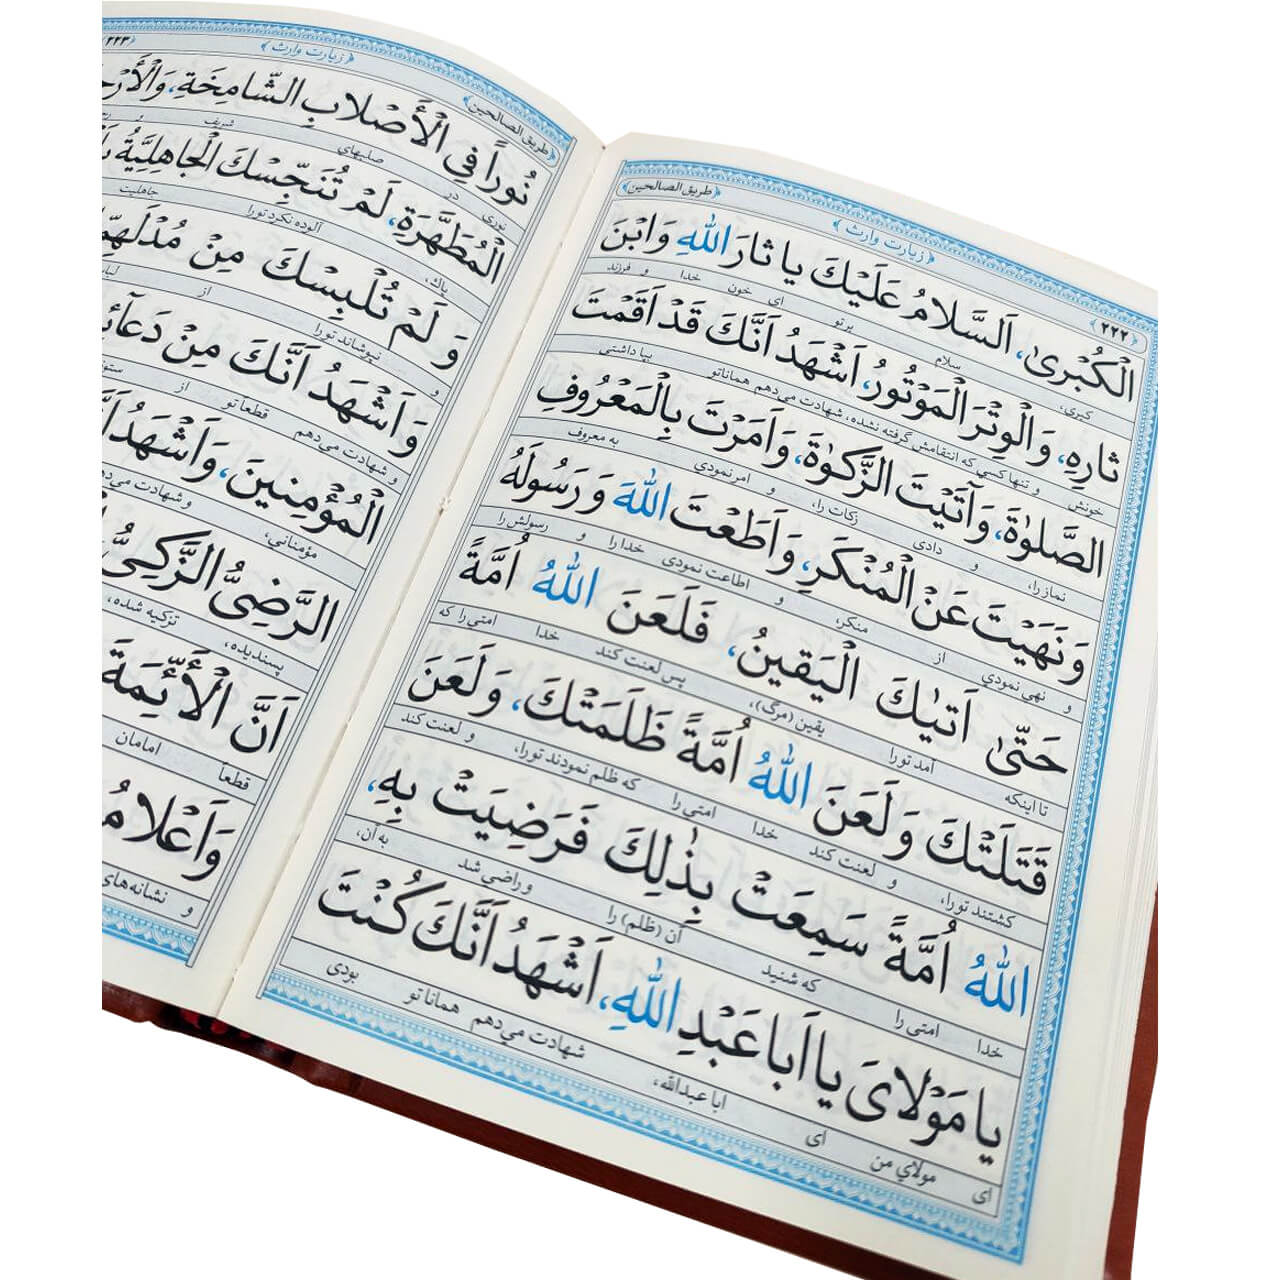 ﴿طریق الصالحین﴾ ﴿زیارت وارث﴾ ﴿۲۲۲﴾
الْكُبْرىٰ، اَلسَّلامُ عَلَيْكَ يا ثارَ اللهِ وَابْنَ
کبری، سلام برتو ای خون خدا و فرزند
ثارِهِ، وَالْوِتْرَ الْمَوْتُورُ، اَشْهَدُ اَنَّكَ قَدْ اَقَمْتَ
خونش و تنها کسی که انتقامش گرفته نشده، شهادت می‌دهم همانا تو بپا داشتی
الصَّلوٰةَ، وَآتَيْتَ الزَّكوٰةَ، وَاَمَرْتَ بِالْمَعْرُوفِ
نماز را، و دادی زکات را، و امر نمودی به معروف
وَنَهَيْتَ عَنْ الْمُنْكَرِ، وَاَطَعْتَ اللهَ وَرَسُولَهُ
و نهی نمودی از منکر، و اطاعت نمودی خدا را و رسولش را
حَتّىٰ اَتيٰكَ الْيَقينُ، فَلَعَنَ اللهُ اُمَّةً
تا اینکه آمد تو را یقین (مرگ)، پس لعنت کند خدا امتی را که
قَتَلَتْكَ وَلَعَنَ اللهُ اُمَّةً ظَلَمَتْكَ، وَلَعَنَ
کشتند تو را، و لعنت کند خدا امتی را که ظلم نمودند تو را، و لعنت کند
اللهُ اُمَّةً سَمِعَتْ بِذٰلِكَ فَرَضِيَتْ بِهِ،
خدا امتی را که شنید آن (ظلم) را و راضی شد به آن،
يا مَوْلايَ يا اَبا عَبْدِ اللهِ، اَشْهَدُ اَنَّكَ كُنْتَ
ای مولای من ای ابا عبدالله، شهادت می‌دهم همانا تو بودی
﴿طریق الصالحین﴾ ﴿زیارت وارث﴾ ﴿۲۲۳
نُوراً فِي الْأَصْلابِ الشّامِخَةِ، وَالْأَرْحٰ
نوری در صلبهای شریف و
الْمُطَهَّرَةِ، لَمْ تُنَجِّسْكَ الْجاهِلِيَّةُ
پاک، آلوده نکرد تو را جاهلیت
وَ لَمْ تُلْبِسْكَ مِنْ مُدْلَهِمّ
و نپوشاند تو را از
وَ اَشْهَدُ اَنَّكَ مِنْ دَعائِ
و شهادت می‌دهم قطعا تو از
الْمُؤْمِنينَ، وَاَشْهَدُ
مؤمنانی، و شهادت
الرَّضِيُّ الزَّكِيُّ
پسندیده، تزکیه شده،
اَنَّ الْأَئِمَّةَ
قطعاً امامان
وَاَعْلامُ
و نشانه‌های